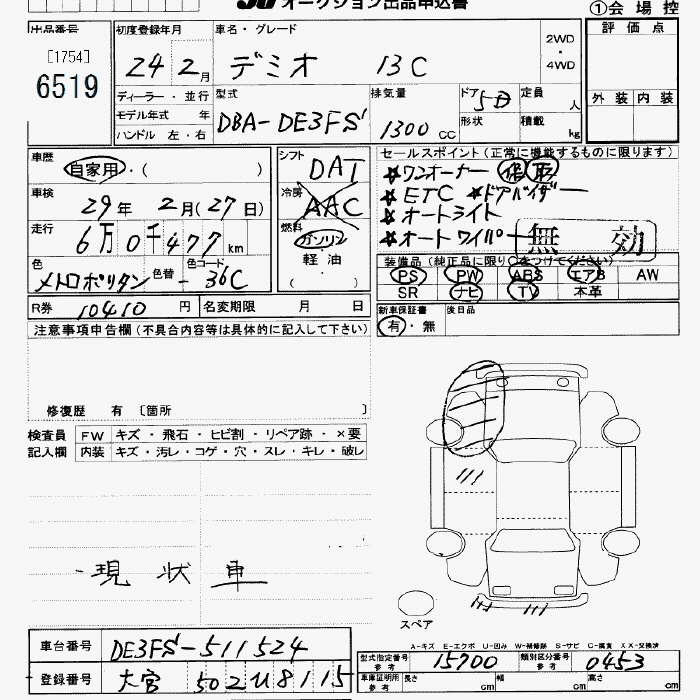 オークション出品申込書
①会場控
出品番号
[1754]
6519
初度登録年月
24 2月
車名・グレード
デミオ 13C
2WD
・
4WD
評価点
外装 内装
ディーラー・並行
モデル年式 年
ハンドル 左・右
型式
DBA-DE3FS
排気量
1300 CC
ドア 5D
形状
定員 人
積載 kg
車歴
自家用・( )
車検
29年 2月(27日)
走行
6万0千477km
色
メトロポリタン
色替 -
色コード
36C
シフト
DAT
冷房
AAC
燃料
ガソリン
軽油
( )
セールスポイント(正常に機能するものに限ります)
ワンオーナー 保 取
ETC ドアバイザー
オートライト
オートワイパー
無効
装備品(純正品に限り○をつけてください)
PS PW ABS エアB AW
SR ナビ TV 本革
R券 10410円
名変期限 月 日
新車保証書
有・無
後日品
注意事項申告欄(不具合内容等は具体的に記入して下さい)
修復歴 有 [箇所 ]
検査員記入欄
FW キズ・飛石・ヒビ割・リペア跡・×要
内装 キズ・汚レ・コゲ・穴・スレ・キレ・破レ
現状車
スペア
A-キズ E-エクボ U-凹み W-補修跡 S-サビ C-腐食 XX-交換済
車台番号 DE3FS-511524
登録番号 大宮 502 U8115
型式指定番号 参考 15700
類別区分番号 参考 0453
車庫証明用 参考 長さ cm 幅 cm 高さ cm